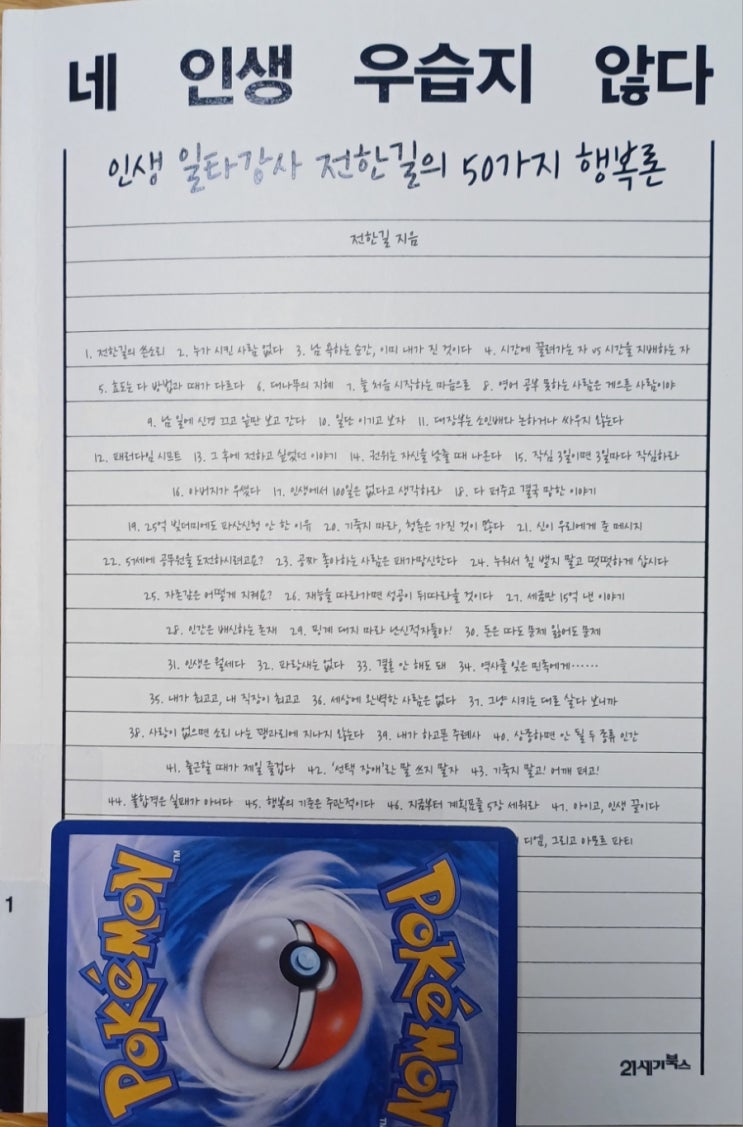 네 인생 우습지 않다
인생 일타강사 전한길의 50가지 행복론
전한길 지음
1. 전한길의 쓴소리 2. 누가 시킨 사람 없다 3. 남 욕하는 순간, 이미 내가 진 것이다 4. 시간에 끌려가는 자 vs 시간을 지배하는 자
5. 효도는 다 방법과 때가 다르다 6. 대나무의 지혜 7. 늘 처음 시작하는 마음으로 8. 영어 공부 못하는 사람은 게으른 사람이야
9. 남 일에 신경 끄고 앞만 보고 간다 10. 일단 이기고 보자 11. 대장부는 소인배와 논하거나 싸우지 않는다
12. 패러다임 시프트 13. 그 후에 전하고 싶었던 이야기 14. 권위는 자신을 낮출 때 나온다 15. 작심 3일이면 3일마다 작심하라
16. 아버지가 우셨다 17. 인생에서 100일은 없다고 생각하라 18. 다 퍼주고 결국 망한 이야기
19. 25억 빚더미에도 파산신청 안 한 이유 20. 기죽지 마라, 청춘은 가진 것이 많다 21. 신이 우리에게 준 메시지
22. 57세에 공무원을 도전하시려고요? 23. 공짜 좋아하는 사람은 패가망신한다 24. 누워서 침 뱉지 말고 떳떳하게 삽시다
25. 자존감은 어떻게 지켜요? 26. 재능을 따라가면 성공이 뒤따라올 것이다 27. 세금만 15억 낸 이야기
28. 인간은 배신하는 존재 29. 핑계 대지 마라 난신적자들아! 30. 돈은 따도 문제 잃어도 문제
31. 인생은 월세다 32. 파랑새는 없다 33. 결혼 안 해도 돼 34. 역사를 잊은 민족에게……
35. 내가 최고고, 내 직장이 최고고 36. 세상에 완벽한 사람은 없다 37. 그냥 시키는 대로 살다 보니까
38. 사랑이 없으면 소리 나는 꽹과리에 지나지 않는다 39. 내가 하고픈 주례사 40. 상종하면 안 될 두 종류 인간
41. 출근할 때가 제일 즐겁다 42. '선택 장애'란 말 쓰지 말자 43. 기죽지 말고! 어깨 펴고!
44. 불합격은 실패가 아니다 45. 행복의 기준은 주관적이다 46. 지금부터 계획표를 5장 세워라 47. 아이고, 인생 끝이다
디엠, 그리고 아모르 파티
1
POKéMON TM
POKéMON TM
21세기북스